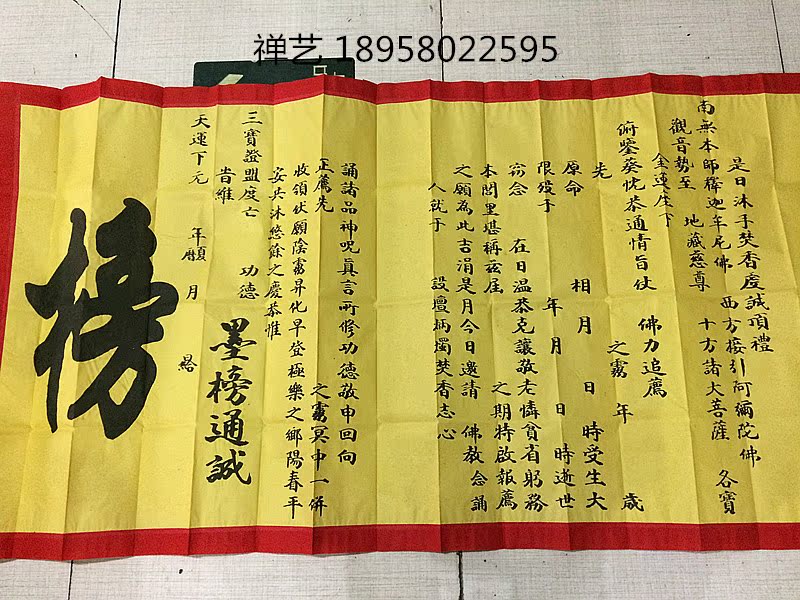 禅艺 18958022595
是日沐手焚香虔誠頂禮
南無本師釋迦牟尼佛 西方接引阿彌陀佛
觀音勢至 地藏慈尊 十方諸大菩薩 各寶
金蓮座下
俯鑒葵忱恭通情旨仗 佛力追薦
先 之靈 年 歲
原命 相 月 日 時受生大
限歿于 年 月 日 時逝世
竊念 在日温恭克讓敬老憐貧省躬務
本閭里堪稱茲届 之期特啟報薦
之願為此吉涓是月今日邀請 佛教 念誦
人就于 設壇炳燭焚香志心
誦諸品神呪真言所修功德敬申回向
正薦先 之靈冥中一併
收領伏願陰靈昇化早登極樂之鄉陽春平
安共沐悠餘之慶恭惟
三寶證盟度亡 功德
昔維
墨榜通誠
天運下元 年曆 月 給
榜